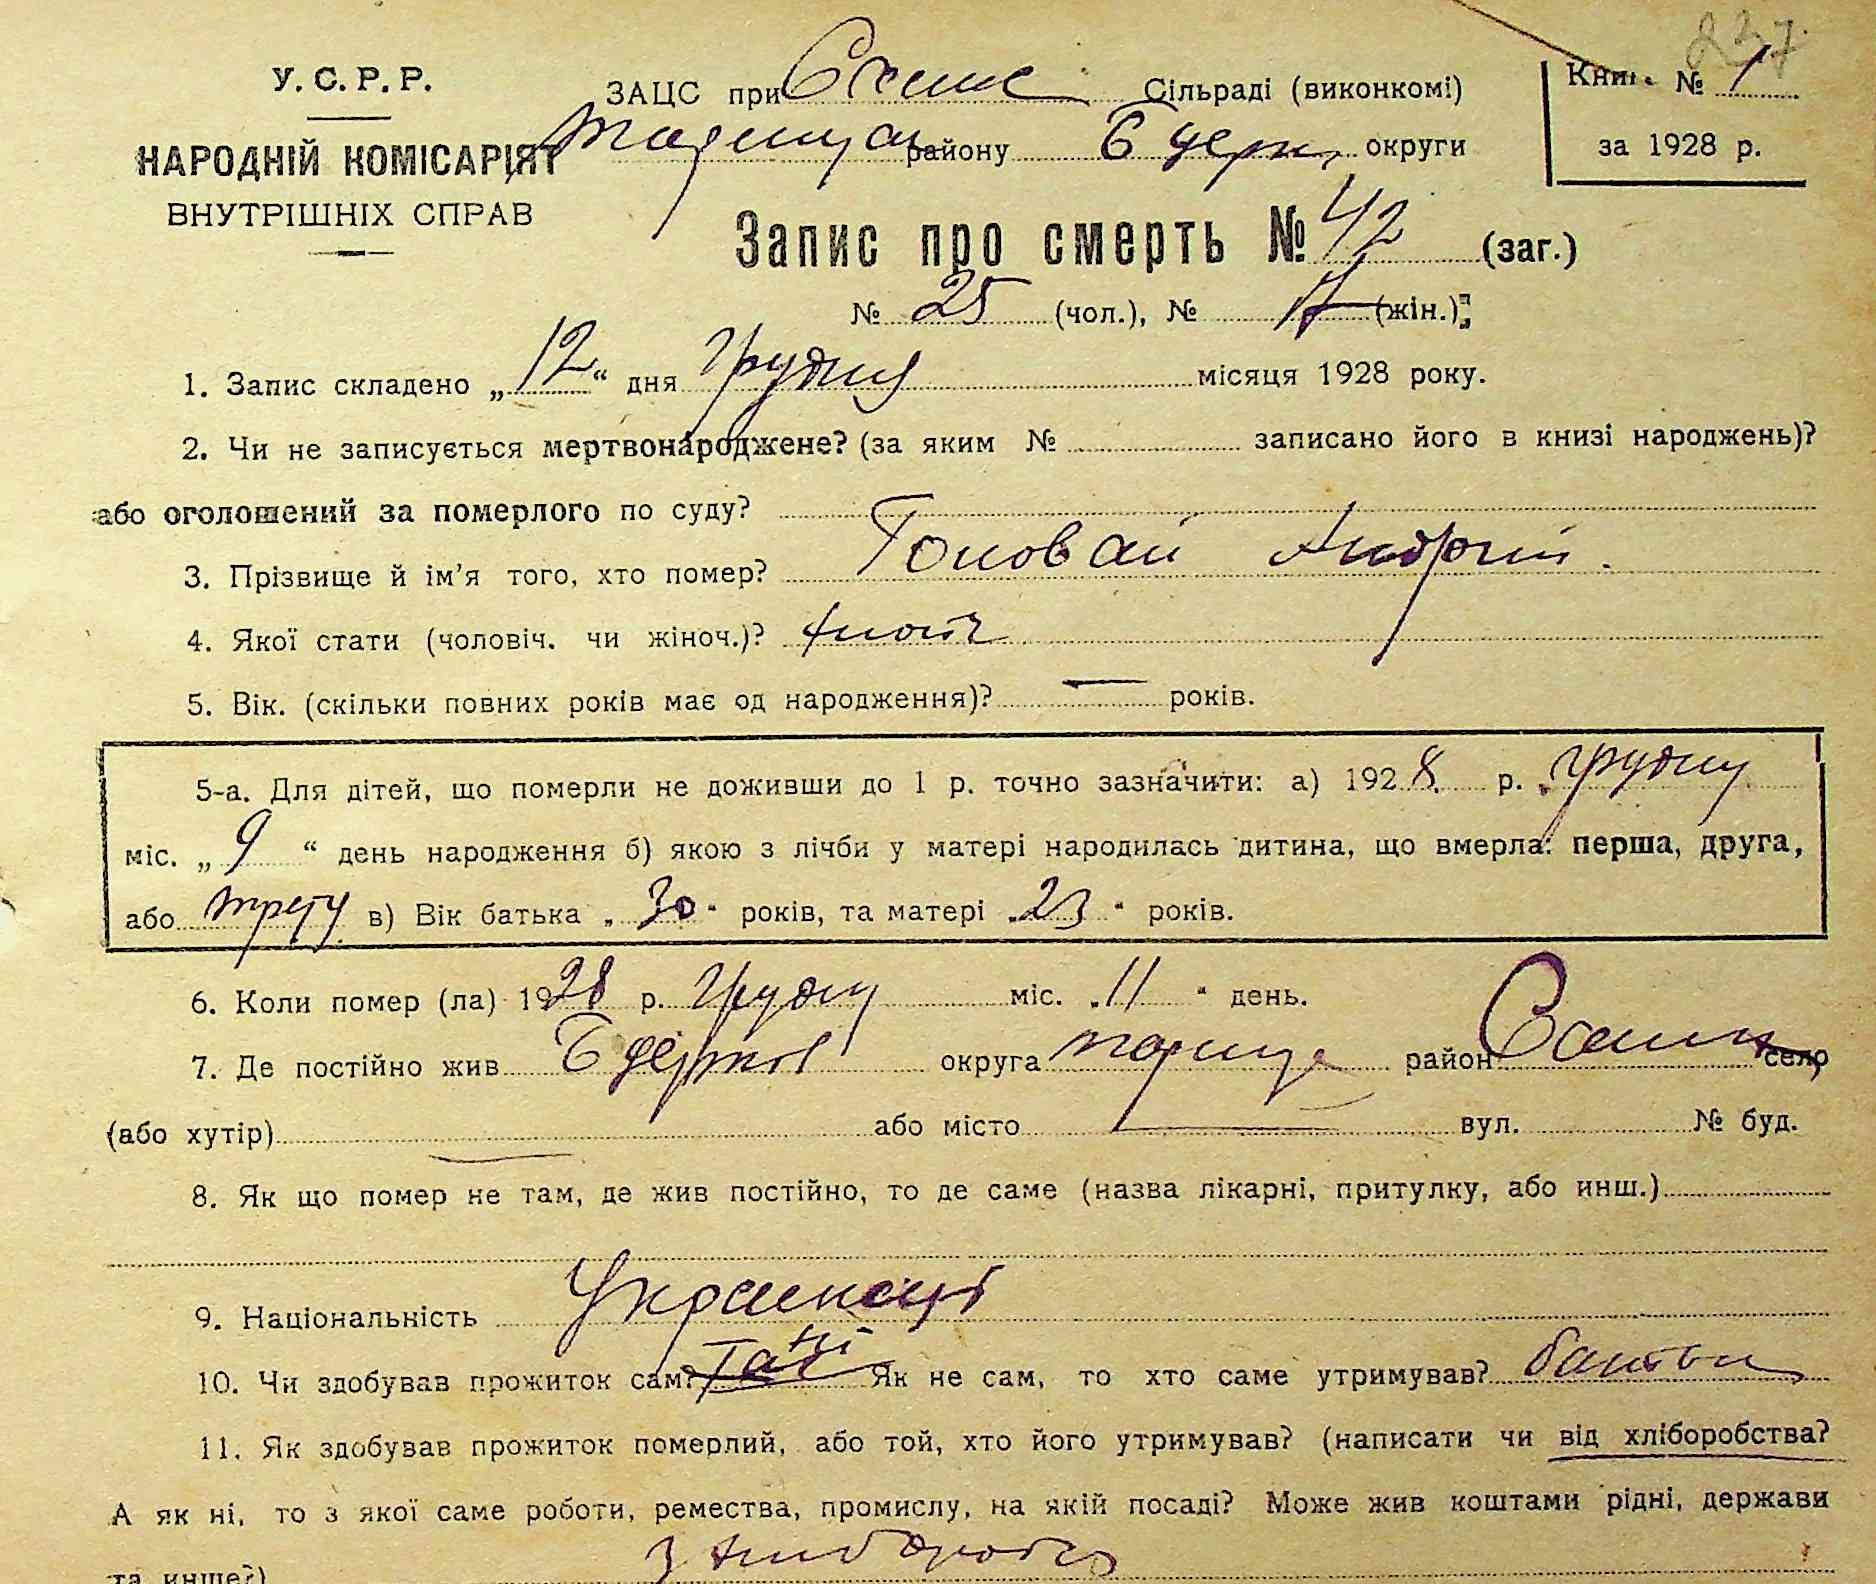 237
У. С. Р. Р.
НАРОДНІЙ КОМІСАРІЯТ
ВНУТРІШНІХ СПРАВ
ЗАЦС при Сільраді (виконкомі)
району округи
Книг. № 1
за 1928 р.
Запис про смерть № 42 (заг.)
№ 25 (чол.), № (жін.)
1. Запис складено „12“ дня грудня місяця 1928 року.
2. Чи не записується мертвонароджене? (за яким № записано його в книзі народжень)?
або оголошений за померлого по суду?
3. Прізвище й ім'я того, хто помер? Головай Андрій.
4. Якої стати (чоловіч. чи жіноч.)?
5. Вік. (скільки повних років має од народження)? — років.
5-а. Для дітей, що померли не доживши до 1 р. точно зазначити: а) 1928 р. грудня
міс. „9“ день народження б) якою з лічби у матері народилась дитина, що вмерла: перша, друга,
або в) Вік батька „30“ років, та матері „23“ років.
6. Коли помер (ла) 1928 р. грудня міс. „11“ день.
7. Де постійно жив округа район село
(або хутір) — або місто — вул. № буд.
8. Як що помер не там, де жив постійно, то де саме (назва лікарні, притулку, або инш.)
9. Національність
10. Чи здобував прожиток сам? ні Як не сам, то хто саме утримував? батьки
11. Як здобував прожиток померлий, або той, хто його утримував? (написати чи від хліборобства?
А як ні, то з якої саме роботи, ремества, промислу, на якій посаді? Може жив коштами рідні, держави
та инше?)